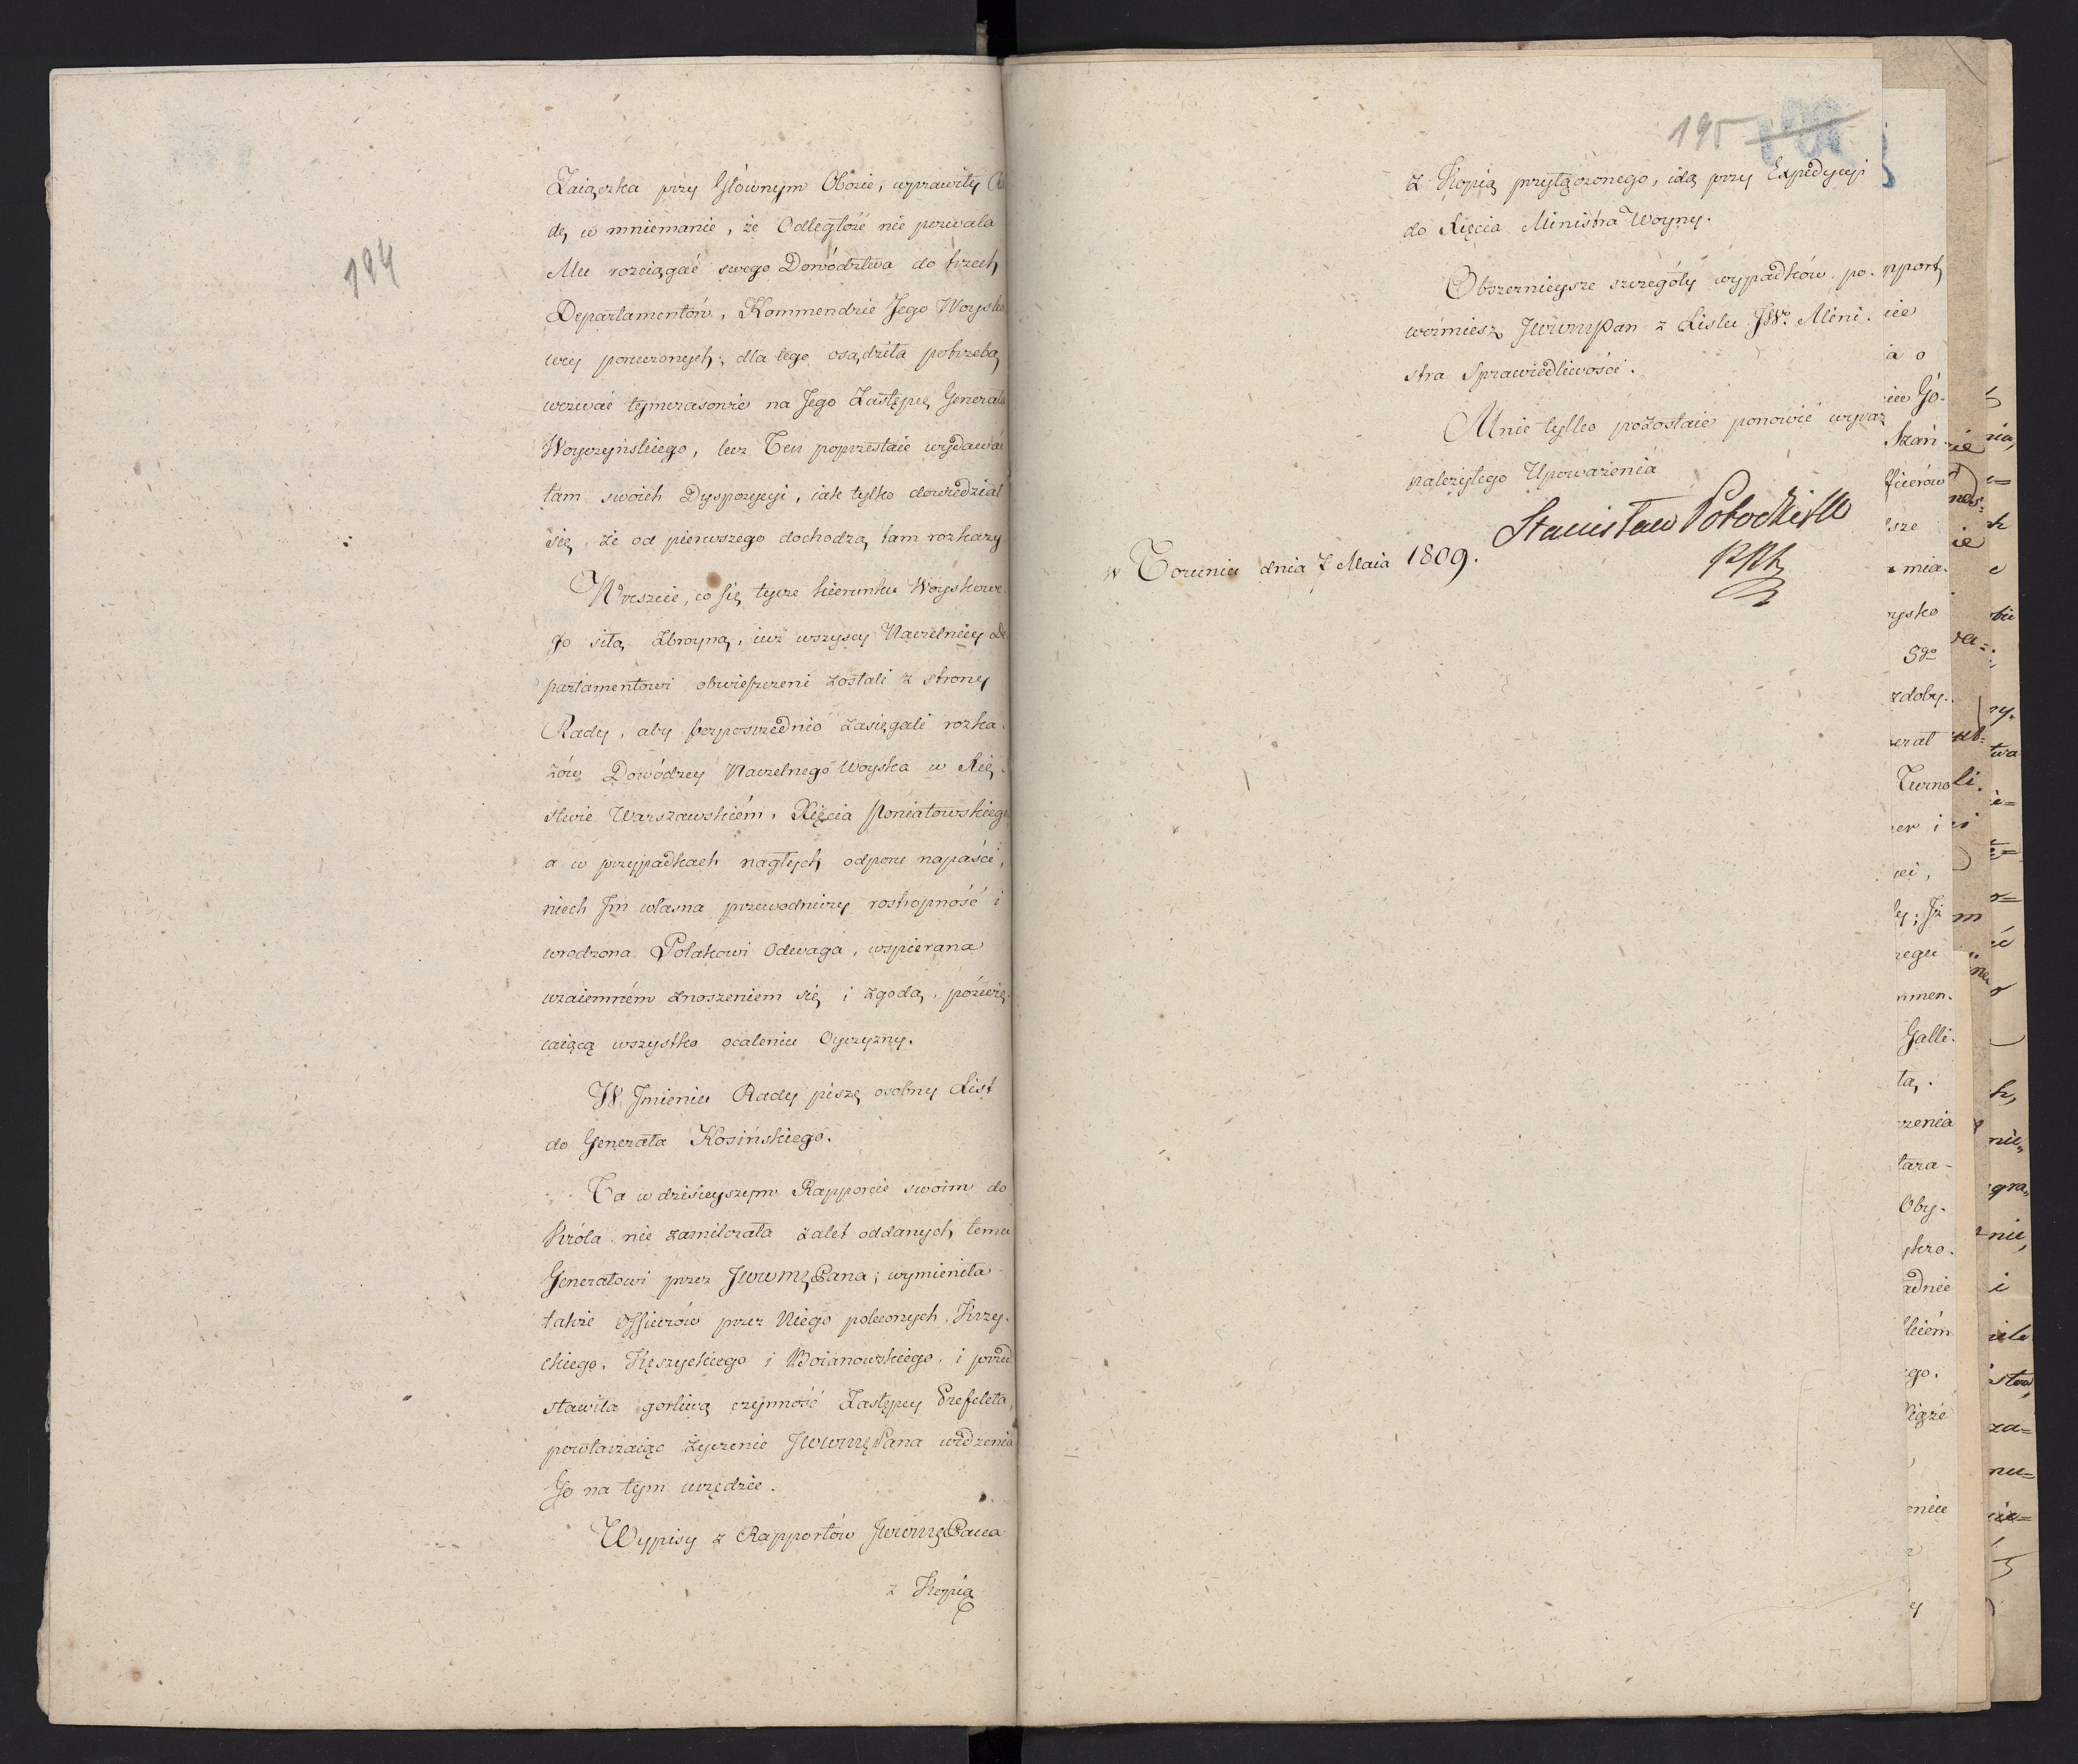 194
Zaiączka przy Głównym Obozie, wprawiły
dę w mniemanie, że Odległość nie pozwala
Mu rozciągać swego Dowództwa do trzech
Departamentów, Kommendzie Jego Woysko
wey poruczonych; dla tego osądziła potrzebą
wezwać tymczasowie na Jego Zastępcę Generała
Woyczyńskiego, lecz Ten poprzestaie wydawać
tam swoich Dyspozycyi, iak tylko dowiedział
się, że od pierwszego dochodzą tam rozkazy
Wreszcie, co się tycze kierunku Woyskowe
go siłą zbroyną, iuż wszyscy Naczelnicy De
partamentowi obwieszczeni zostali z strony
Rady, aby bezpośrednio zasięgali rozka-
zów Dowódzcy Naczelnego Woyska w Xię-
stwie Warszawskiém, Xięcia Poniatowskiego
a w przypadkach nagłych odporu napaści,
niech Im własna przewodniczy roztropność i
wrodzona Polakowi Odwaga, wspierana
wzaiemném znoszeniem się i zgodą, poświę-
caiącą wszystko ocaleniu Oyczyzny.
W Imieniu Rady piszę osobny List
do Generała Kosińskiego.
Ta w dzisieyszym Rapporcie swoim do
Króla nie zamilczała zalet oddanych temu
Generałowi przez JWWMPana; wymieniła
także Officerów przez Niego poleconych, Krzy-
ckiego, Kęszyckiego i Woianowskiego, i przed
stawiła gorliwą czynność Zastępcy Prefekta,
powtarzaiąc życzenie JWWMPana widzenia
Go na tym urzędzie.
Wypisy z Rapportów JWWMPana
z Kopią
195
z Kopią przyłączonego, idą przy Expedycyi
do Xięcia Ministra Woyny.
Obszernieysze szczegóły wypadków po-
weźmiesz JWWMPan z Listu JW. Mini-
stra Sprawiedliwości.
Mnie tylko pozostaie ponowić wyraz
należytego Upoważenia
Stanisław Potocki
w Toruniu dnia 7 Maia 1809.